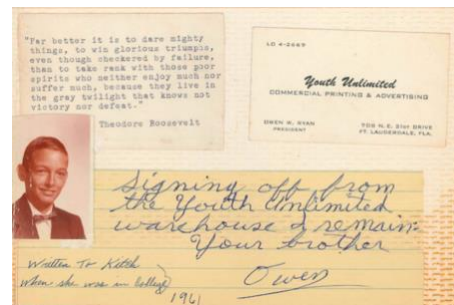 "Far better it is to dare mighty
things, to win glorious triumphs,
even though checkered by failure,
than to take rank with those poor
spirits who neither enjoy much nor
suffer much, because they live in
the gray twilight that knows not
victory nor defeat."
Theodore Roosevelt
LO 4-2669
Youth Unlimited
COMMERCIAL PRINTING & ADVERTISING
OWEN W. RYAN
PRESIDENT
N.E. 21st DRIVE
FT. LAUDERDALE, FLA.
Signing off from
the Youth Unlimited
warehouse I remain
Your brother
Owen
Written To Kitch
when she was in College
1961